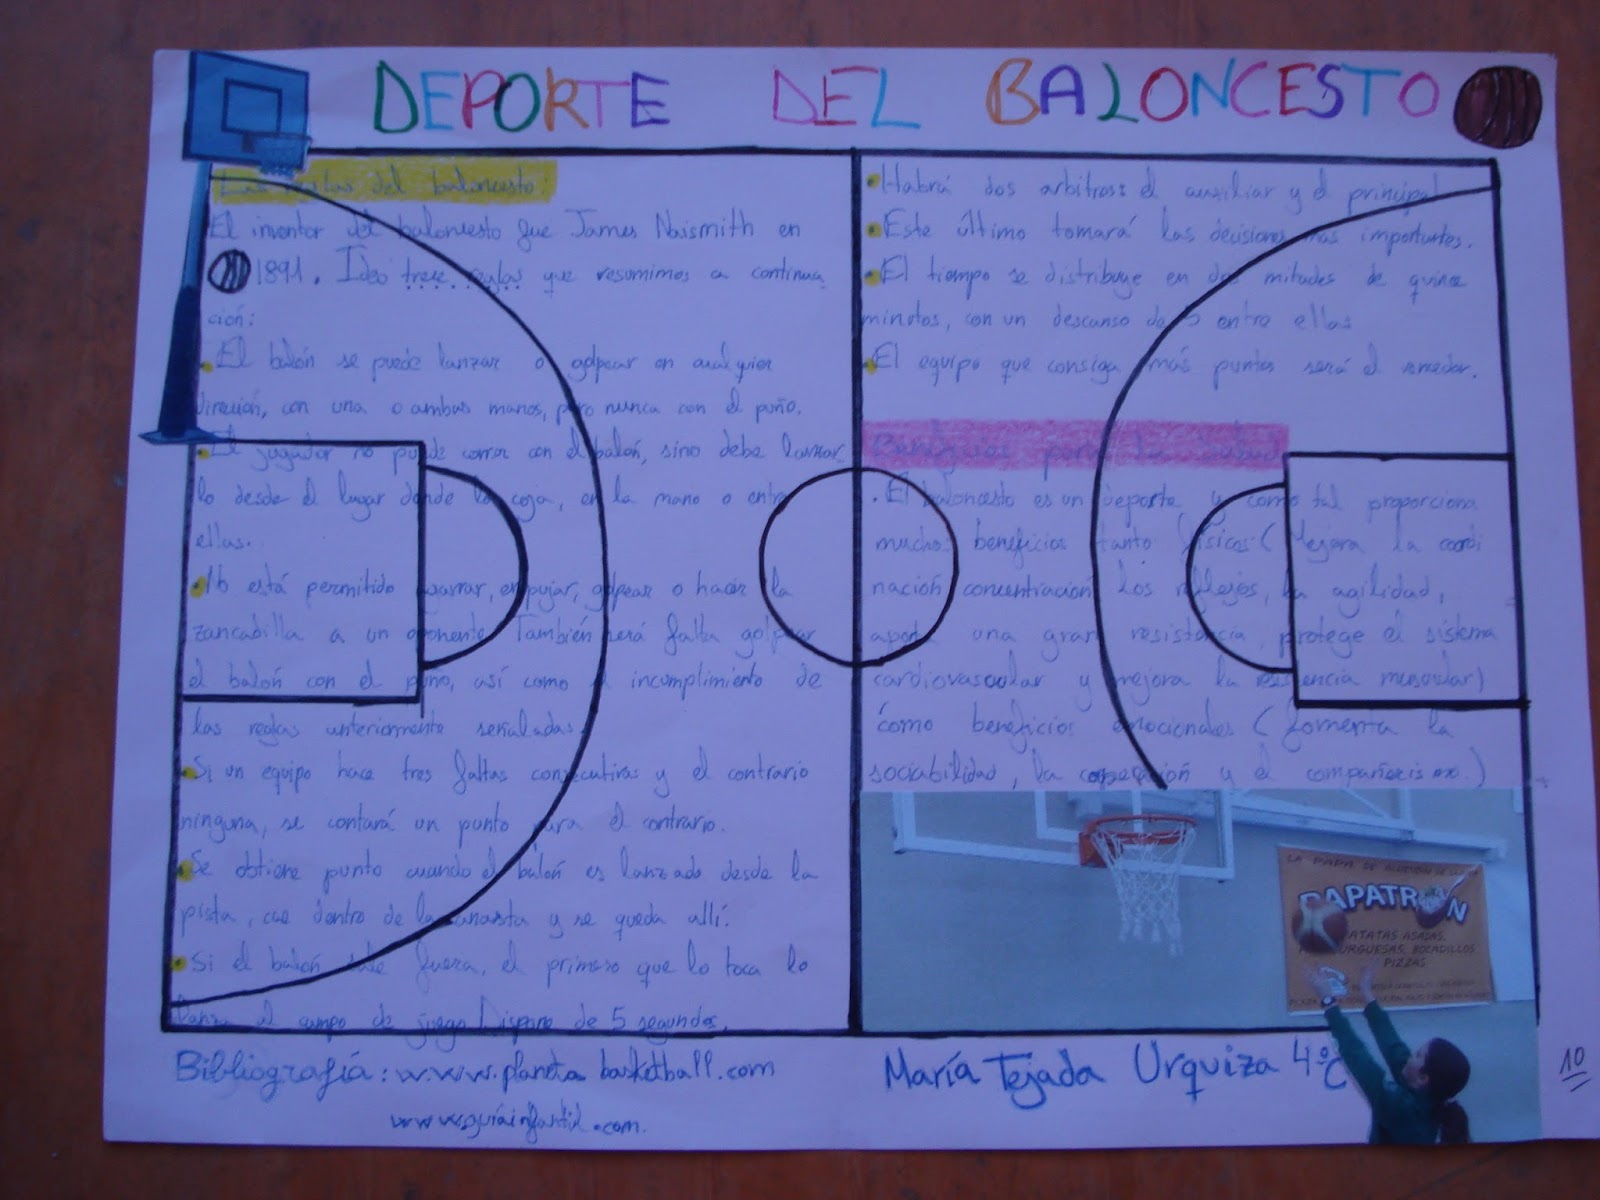 DEPORTE DEL BALONCESTO
Las reglas del baloncesto:
El inventor del baloncesto fue James Naismith en
1891. Ideó trece reglas que resumimos a continua
ción:
El balón se puede lanzar o golpear en cualquier
dirección, con una o ambas manos, pero nunca con el puño.
El jugador no puede correr con el balón, sino debe lanzar
lo desde el lugar donde lo coja, en la mano o entre
ellas.
No está permitido agarrar, empujar, golpear o hacer la
zancadilla a un oponente. También será falta golpear
el balón con el puño, así como el incumplimiento de
las reglas anteriormente señaladas.
Si un equipo hace tres faltas consecutivas y el contrario
ninguna, se contará un punto para el contrario.
Se obtiene punto cuando el balón es lanzado desde la
pista, cae dentro de la canasta y se queda allí.
Si el balón sale fuera, el primero que lo toca lo
lanza al campo de juego. Dispone de 5 segundos.
Habrá dos arbitros: el auxiliar y el principal
Este último tomará las decisiones más importantes.
El tiempo se distribuye en dos mitades de quince
minutos, con un descanso de 5 entre ellas
El equipo que consiga más puntos será el vencedor.
Beneficios para la salud
. El baloncesto es un deporte y como tal proporciona
muchos beneficios tanto físicos (Mejora la coordi
nación concentración los reflejos, la agilidad,
aporta una gran resistencia, protege el sistema
cardiovascular y mejora la resistencia muscular)
como beneficios emocionales (fomenta la
sociabilidad, la cooperación y el compañerismo.)
LA PAPA DE
PAPATRÓN
PATATAS ASADAS,
HAMBURGUESAS, BOCADILLOS
PIZZAS
Bibliografía: www.planeta basketball.com
www.guiainfantil.com.
María Tejada Urquiza 4ºC
10